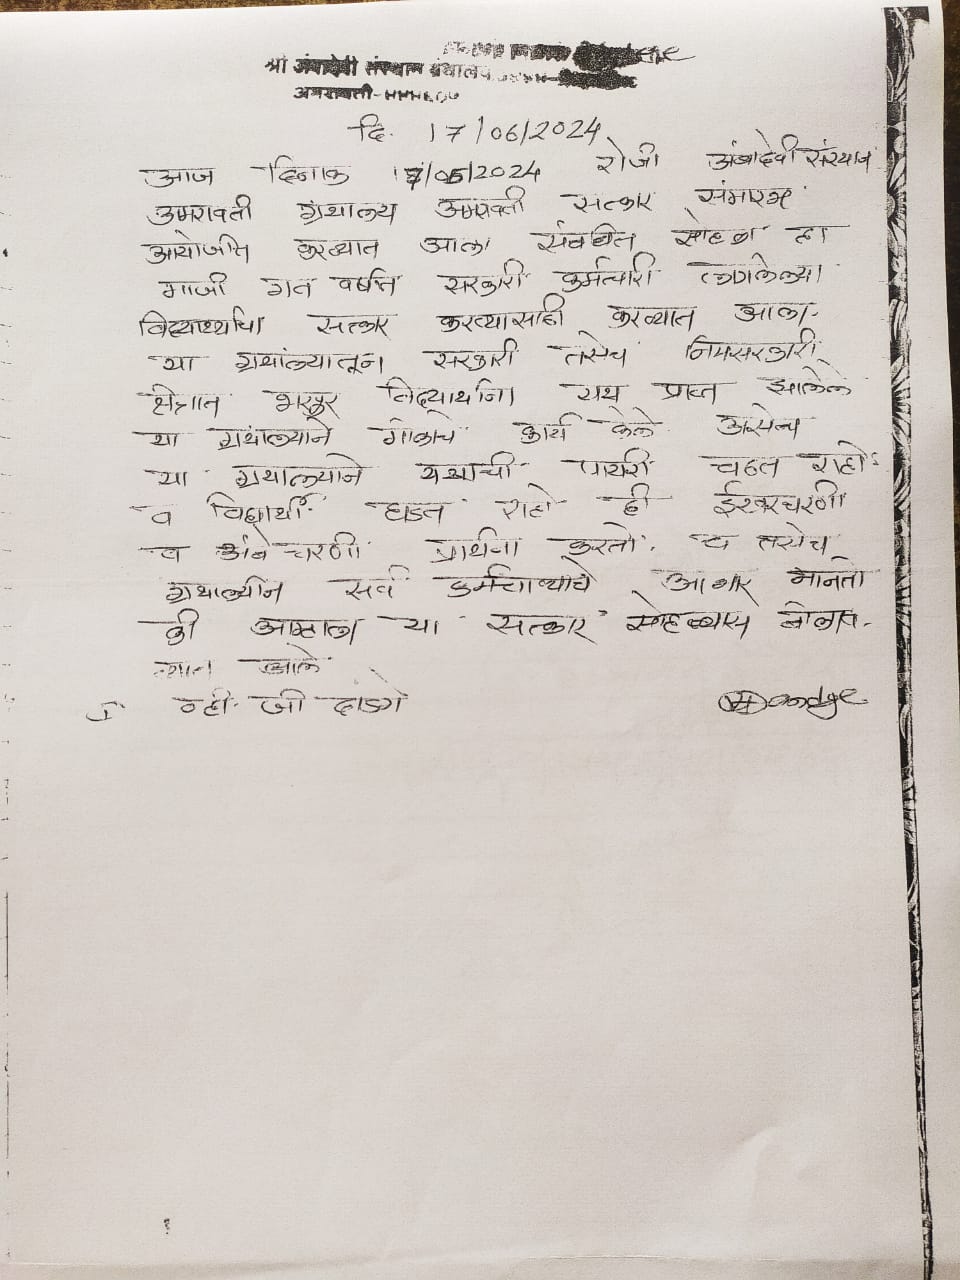 श्री अंबादेवी संस्थान ग्रंथालय
अमरावती
दि. 17/06/2024
आज दिनाक 17/06/2024 रोजी अंबादेवी संस्थान
अमरावती ग्रंथालय अमरावती सत्कार संमारभ
आयोजीत करण्यात आला संबधीत सोहळा हा
माजी गत वर्षात सरकारी कर्मचारी लागलेल्या
विद्यार्थ्यांचा सत्कार करण्यासाठी करण्यात आला.
या ग्रथांल्यातून सरकारी तसेच निमसरकारी
क्षेत्रात भरपूर विद्यार्थीना यश प्राप्त झालेले
या ग्रथांल्याने मोलाचे कार्य केले असेच
या ग्रथाल्याने यशाची पायरी चढत राहो.
व विद्यार्थी घडत राहो ही ईश्वरचरणी
व अंबे चरणी प्रार्थना करतो. तसेच
ग्रथाल्यीन सर्व कर्मचाऱ्याचे आभार मानतो
की आम्हाला या सत्कार सोहळ्यास बोलाव.
ण्यात आले
व्ही. जी दांडगे